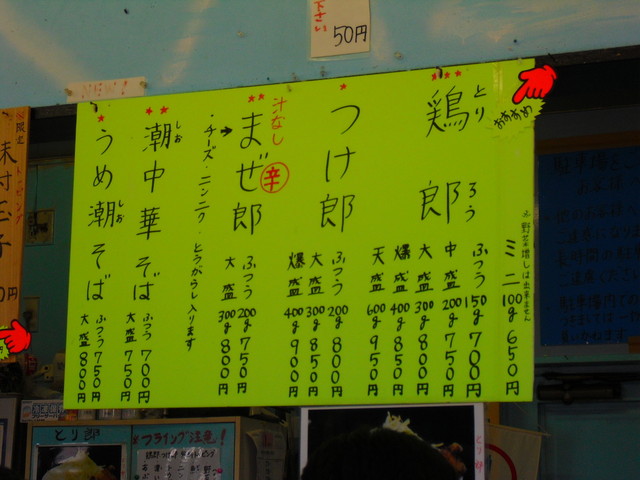 下さい
50円
NEW!
※限定
トッピング
味付玉子
おすすめ
鶏郎
とり
ろう
※野菜増しは出来ません
ミニ 100g 650円
ふつう 150g 700円
中盛 200g 750円
大盛 300g 800円
爆盛 400g 850円
天盛 600g 950円
つけ郎
ふつう 200g 800円
大盛 300g 850円
爆盛 400g 900円
汁なし
まぜ郎
辛
ふつう 200g 750円
大盛 300g 800円
→・チーズ・ニンニク・トウガラシ入ります
潮中華そば
しお
ふつう 700円
大盛 750円
うめ潮そば
しお
ふつう 750円
大盛 800円
とり郎
フライング注意!
とり郎